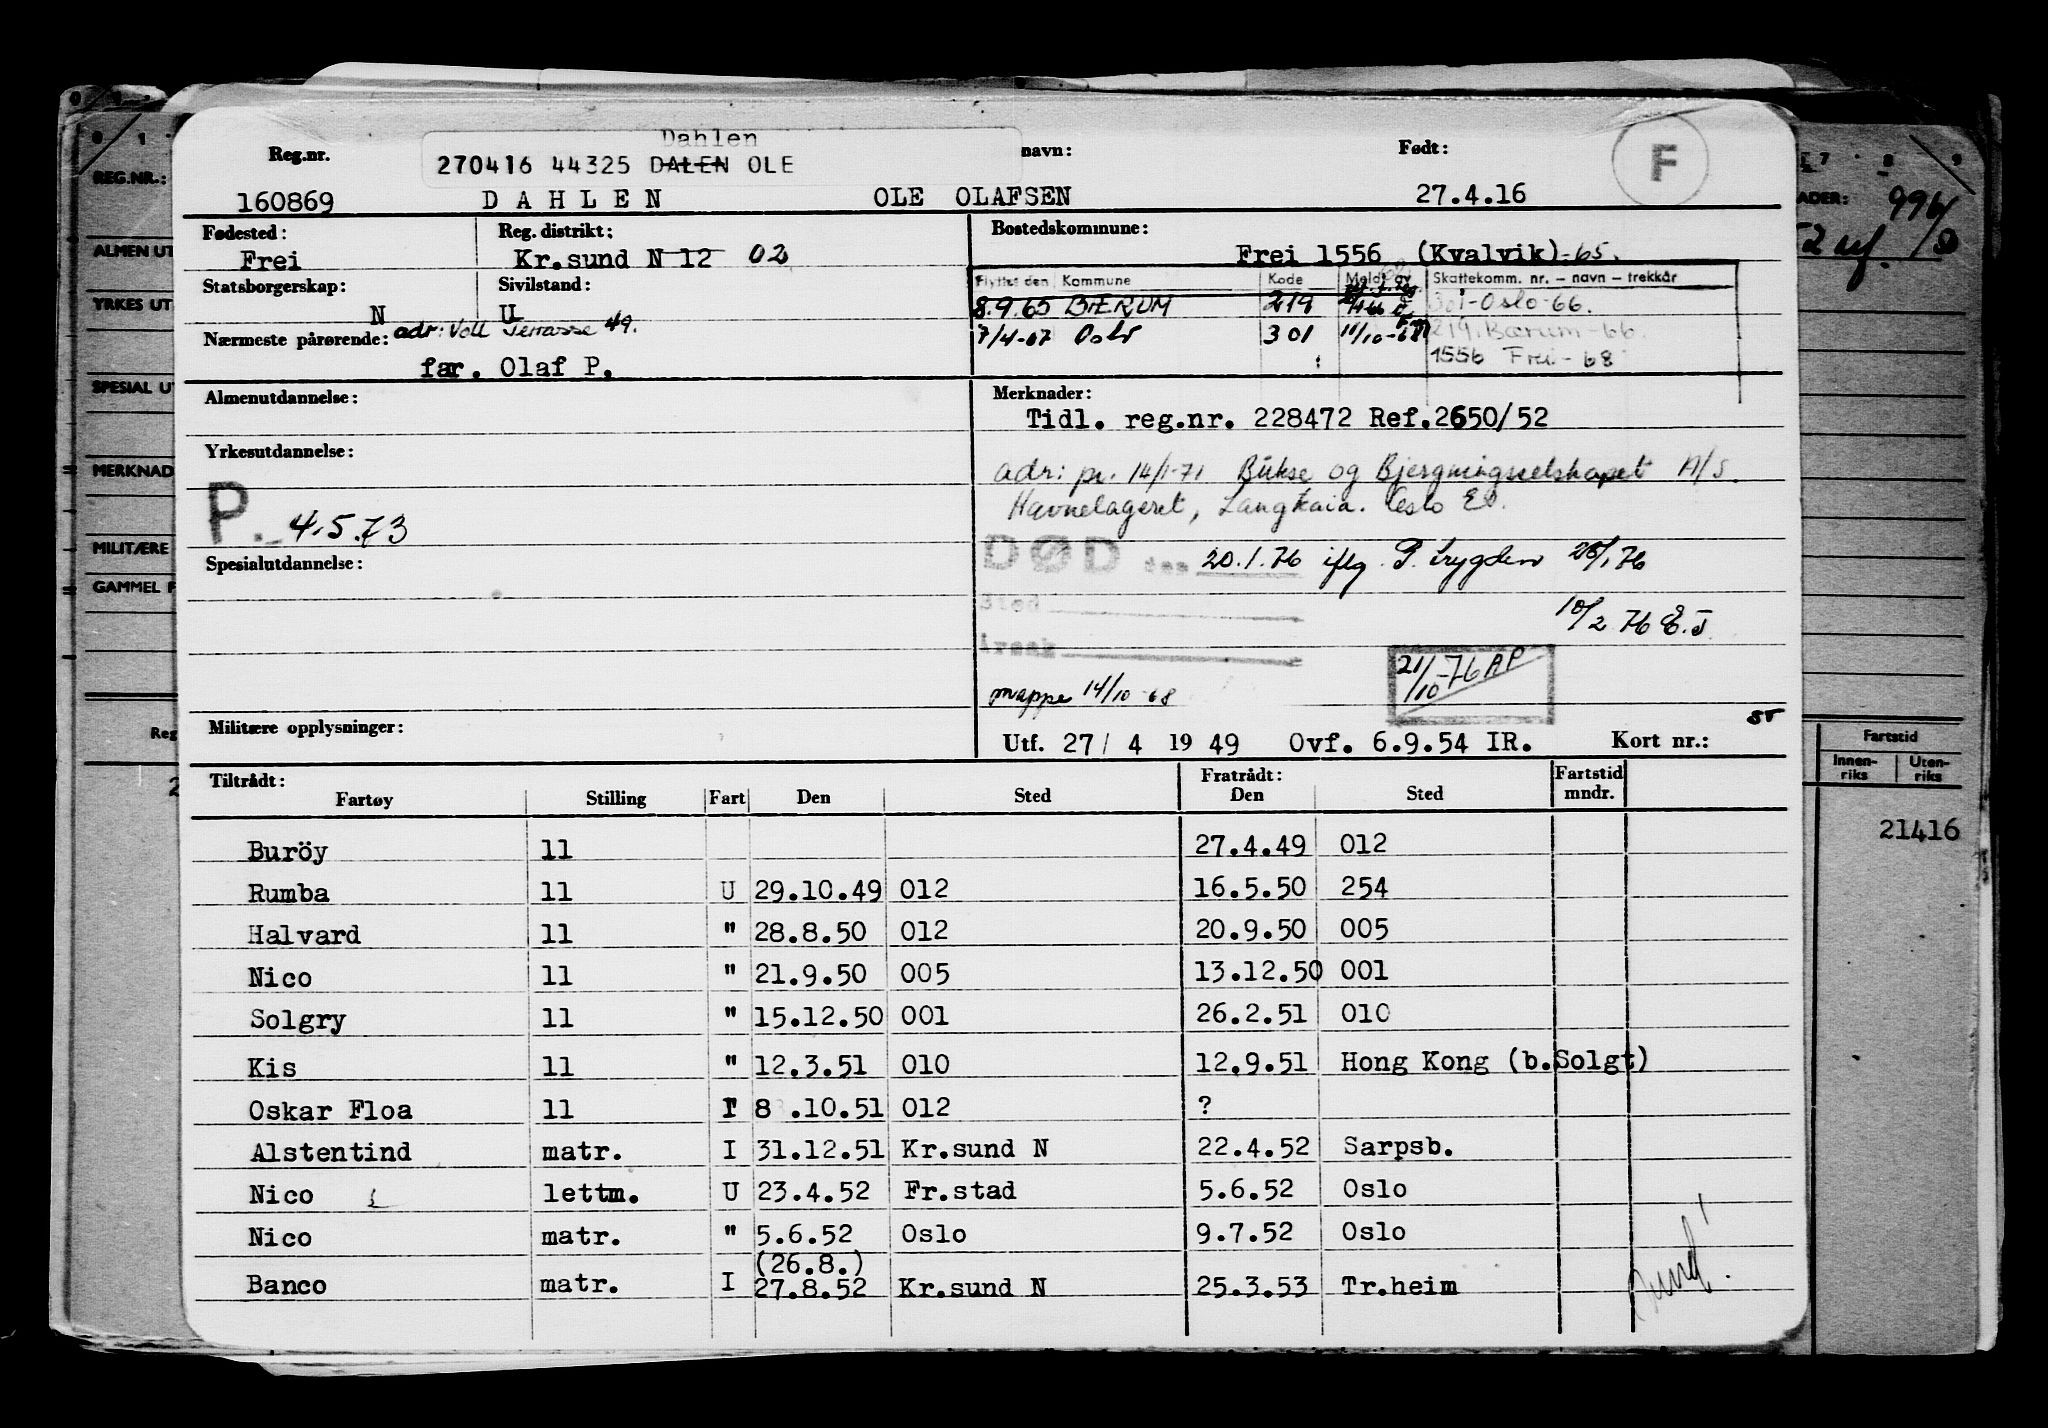 Dahlen
Reg.nr. 270416 44325 DALEN OLE navn: Født: F
160869 DAHLEN OLE OLAFSEN 27.4.16
Fødested: Reg. distrikt: Bostedskommune:
Frei Kr.sund N 12 02 Frei 1556 (Kvalvik)-65.
Statsborgerskap: Sivilstand: Flyttet den Kommune Kode Meldt av Skattekomm. nr. – navn – trekkår
N U 8.9.65 BÆRUM 219 301-Oslo-66.
Nærmeste pårørende: adr: Voll Terrasse 49. 7/4-67 Oslo 301 11/10-68 219. Bærum-66.
1556 Frei-68
far. Olaf P.
Almenutdannelse: Merknader:
Tidl. reg.nr. 228472 Ref.2650/52
Yrkesutdannelse:
adr: pr. 14/1-71 Bukse og Bjergningsselskapet A/S.
P. 4.5.73 Havnelageret, Langkaia. Oslo
DØD den 20.1.76 iflg. P. trygden 28/1 76
Spesialutdannelse:
Sted
10/2 76 E.J.
Årsak
21/10-76 AP
mappe 14/10-68
Militære opplysninger: ST
Utf. 27/ 4 1949 Ovf. 6.9.54 IR. Kort nr.:
Tiltrådt: Fratrådt: Fartstid
Fartøy Stilling Fart Den Sted Den Sted mndr.
Buröy 11 27.4.49 012
Rumba 11 U 29.10.49 012 16.5.50 254
Halvard 11 " 28.8.50 012 20.9.50 005
Nico 11 " 21.9.50 005 13.12.50 001
Solgry 11 " 15.12.50 001 26.2.51 010
Kis 11 " 12.3.51 010 12.9.51 Hong Kong (b.Solgt)
Oskar Floa 11 I 8 .10.51 012 ?
Alstentind matr. I 31.12.51 Kr.sund N 22.4.52 Sarpsb.
Nico lettm. U 23.4.52 Fr.stad 5.6.52 Oslo
Nico matr. " 5.6.52 Oslo 9.7.52 Oslo
(26.8.)
Banco matr. I 27.8.52 Kr.sund N 25.3.53 Tr.heim
REG.NR.:
ALMEN UT
YRKES UT
SPESIAL UT
MERKNAD
MILITÆRE
GAMMEL F
Reg
2
7 8 9
ADER:
Fartstid
Innen-riks Uten-riks
21416